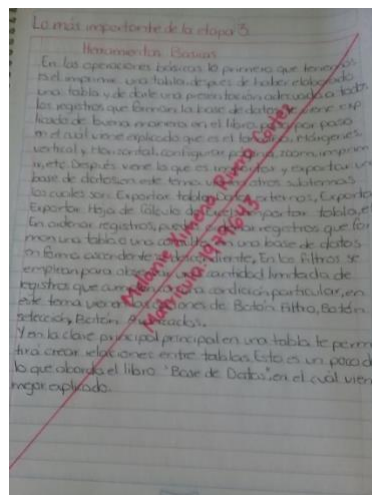 Lo más importante de la etapa 3.
Herramientas Básicas
En las operaciones básicas lo primero que tenemos
es el imprimir una tabla después de haber elaborado
una tabla y de darle una presentación adecuada a todos
los registros que forman la base de datos, viene exp
licado de buena manera en el libro, paso por paso
en el cuál viene explicado que es el Márgenes,
vertical y Horizontal, configurar página, zoom, imprim
ir, etc. Después viene la que es importar y exportar un
base de datos en este tema subtemas
los cuales son: Exportar tablas externos, Exporta
Exportar Hoja de Cálculo de Excel, Importar tabla, et
En ordenar registros, registros que for
man una tabla o una consulta en una base de datos
en forma ascendente descendiente, En los filtros se
emplean para cantidad limitada de
registros que condición particular, en
este tema opciones de Botón Filtro, Botón
selección, Botón Avanzados.
Y en la clave principal principal en una tabla te perm
tirá crear relaciones entre tablas. Esto es un poco d
lo que aborda el libro "Base de Datos", en el cuál vien
mejor explicado.
Melanie Ximena Rivera Cortez
Matrícula